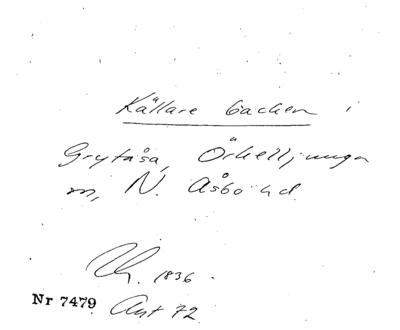 Källare backen
Grytåsa, Örkelljunga
sn, N. Åsbo hd.
1836.
Nr 7479 Ant 72